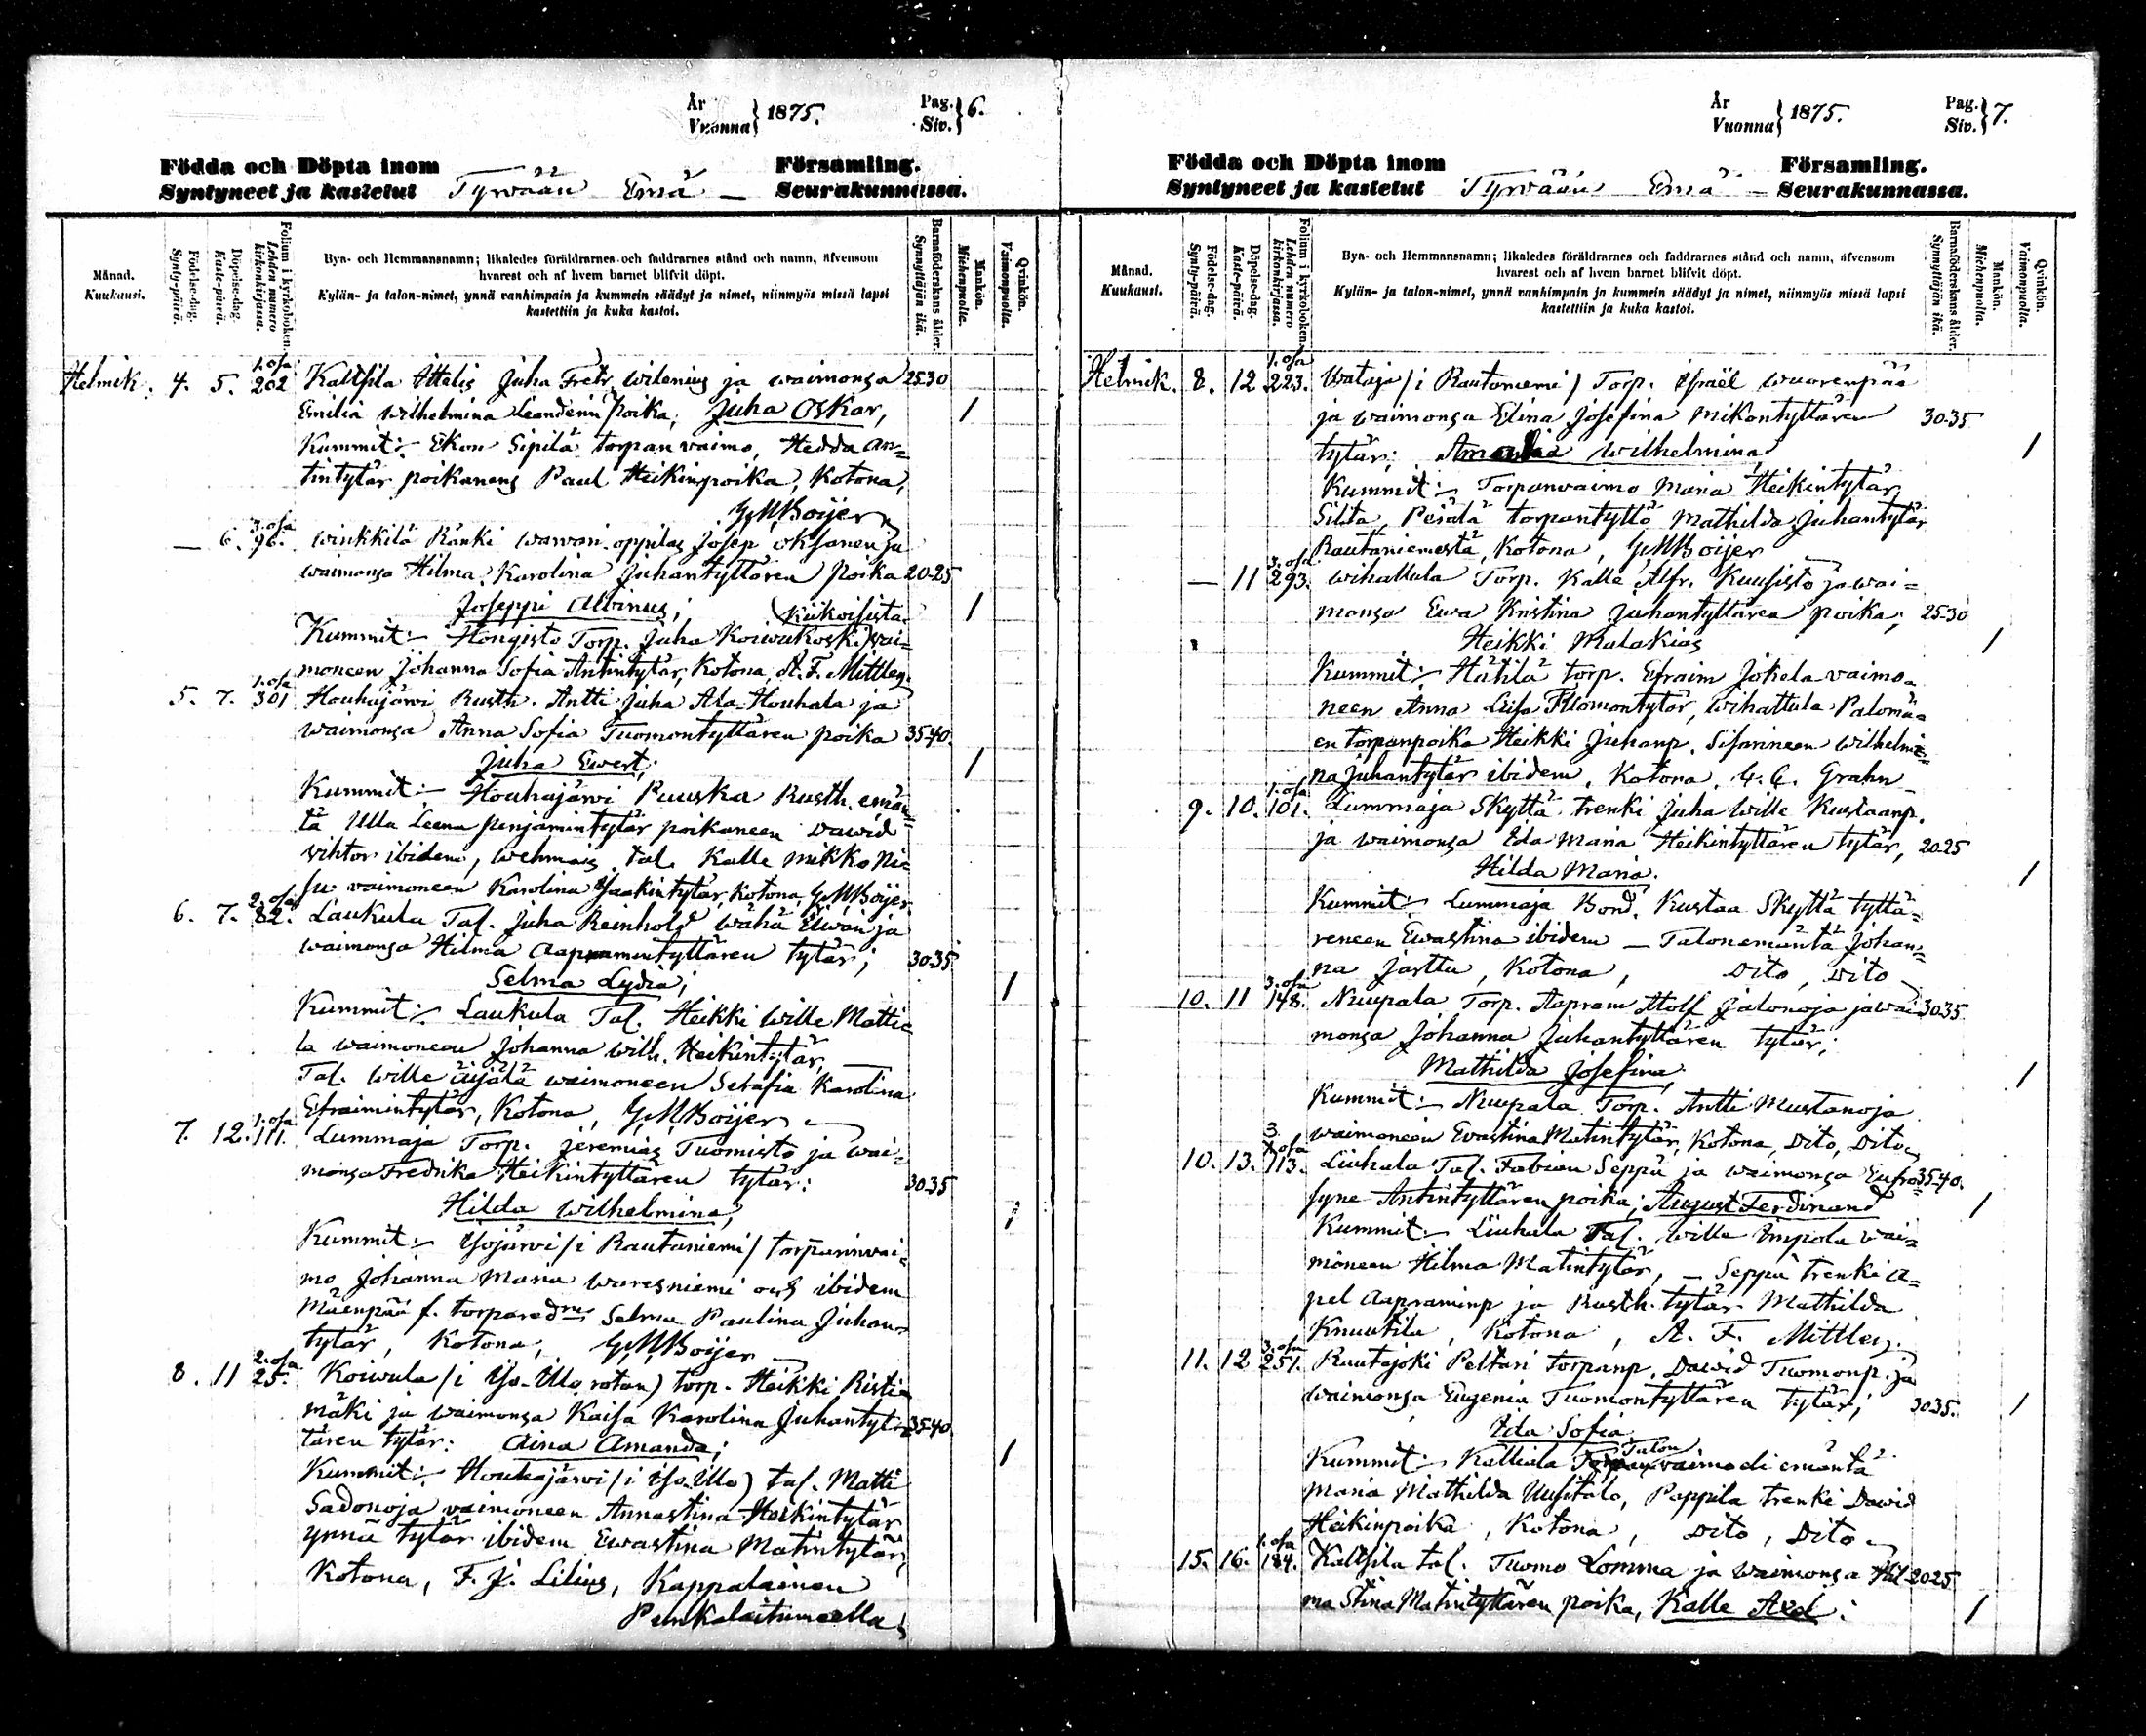 År
Vuonna } 1875.
Pag.
Siv. } 6.
Födda och Döpta inom
Syntyneet ja kastetut
Tyrvään Emä —
Församling.
Seurakunnassa.
Månad.
Kuukausi.
Födelse-dag.
Synty-päivä.
Döpelse-dag.
Kaste-päivä.
Folium i kyrkoboken.
Lehden numero kirkonkirjassa.
Bya- och Hemmansnamn; likaledes föräldrarnes och faddrarnes stånd och namn, äfvensom
hvarest och af hvem barnet blifvit döpt.
Kylän- ja talon-nimet, ynnä vanhimpain ja kummein säädyt ja nimet, niinmyös missä lapsi
kastettiin ja kuka kastoi.
Barnaföderskans ålder.
Synnyttäjän ikä.
Mankön.
Miehenpuolia.
Qvinkön.
Vaimonpuolia.
1. osa
Helmik. 4. 5. 202 Kaltsila Ittelis Juha Fredr. Wilenius ja waimonsa 25-30
Emilia Wilhelmina Leanderin poika; Juha Oskar, /
Kummit:- Ekon Sipilä torpan vaimo, Hedda An=
tintytär poikanens Paul Heikinpoika, Kotona,
G M Boijer
3. osa
— 6. 96. Winkkilä Ränki warvari oppilas Josep Oksanen ja
waimonsa Hilma Karolina Juhantyttären poika 20-25
Joseppi Albinus; /
Kiikoisista
Kummit:- Hongisto Torp. Juha Koiwukoski wai=
moneen Johanna Sofia Antintytär, Kotona, A. F. Mittler.
1. osa
5. 7. 301 Houhajärwi Rusth. Antti Juha Ala Houhala ja
waimonsa Anna Sofia Tuomontyttären poika 35-40.
Juha Ewert; /
Kummit:- Houhajärwi Ruuska Rusth. emän=
tä Ulla Leena Penjamintytär poikaneen Dawid
Vihtor ibidem, Wehmais tal. Kalle Mikko Ni=
su vaimoneen Karolina Jaakintytär, Kotona, G M Boijer
2. osa
6. 7. 82. Laukula Tal. Juha Reinhold Wähä Eiwari ja
waimonsa Hilma Aapramintyttären tytär; 30-35
Selma Lydia; /
Kummit:- Laukula Tal. Heikki Wille Matti=
la waimoneen Johanna Wilh. Heikintytär,
Tal. Wille Äijälä waimoneen Serafia Karolina
Efraimintytär, Kotona, G M Boijer
1. osa
7. 12. 111. Lummaja Torp. Jeremias Tuomisto ja wai=
monsa Fredrika Heikintyttären tytär: 30-35
Hilda Wilhelmina; /
Kummit:- Isojärvi / i Rautaniemi / torparinwai=
mo Johanna Maria Waresniemi och ibidem
Mäenpää f. torpared:n Selma Paulina Juhan=
tytär, Kotona, G M Boijer
2. osa
8. 11 25. Koiwula / i Iso-Ulla rotan) torp. Heikki Risti=
mäki ja waimonsa Kaisa Karolina Juhantyt= 35-40
tären tytär: Aina Amanda; /
Kummit:- Houhajärwi / i Iso-Ulla) tal. Matti
Sadonoja vaimoneen Annastina Heikintytär
ynnä tytär ibidem Ewastina Matintytär,
Kotona, F. J. Lilius, Kappalainen
Punkalaitumella,
År
Vuonna } 1875.
Pag.
Siv. } 7.
Födda och Döpta inom
Syntyneet ja kastetut
Tyrvään Emä —
Församling.
Seurakunnassa.
Månad.
Kuukausi.
Födelse-dag.
Synty-päivä.
Döpelse-dag.
Kaste-päivä.
Folium i kyrkoboken.
Lehden numero kirkonkirjassa.
Bya- och Hemmansnamn; likaledes föräldrarnes och faddrarnes stånd och namn, äfvensom
hvarest och af hvem barnet blifvit döpt.
Kylän- ja talon-nimet, ynnä vanhimpain ja kummein säädyt ja nimet, niinmyös missä lapsi
kastettiin ja kuka kastoi.
Barnaföderskans ålder.
Synnyttäjän ikä.
Mankön.
Miehenpuolia.
Qvinkön.
Vaimonpuolia.
1. osa
Helmik. 8. 12 223. Wataja / i Rautaniemi / Torp. Israël Wuorenpää
ja waimonsa Elina Josefina Mikontyttären 30-35
tytär; Amalia Wilhelmina, /
Kummit:- Torpanwaimo Maria Heikintytär
Silta, Pesälä torpantyttö Mathilda Juhantytär
Rautaniemestä, Kotona, G M Boijer
3. osa
— 11 293. Wihattula Torp. Kalle Alfr. Kuusisto ja wai=
monsa Ewa Kristina Juhantyttären poika; 25-30
Heikki Malakias /
Kummit:- Häkilä torp. Efraim Jokela vaimo=
neen Anna Liisa Filomontytär, Wihattula Palomä=
en torpanpoika Heikki Juhanp. Sisarineen Wilhelmi=
na Juhantytär ibidem, Kotona, G. A. Grahn
1. osa
9. 10. 101. Lummaja Skyttä trenki Juha Wille Kustaanp.
ja waimonsa Eda Maria Heikintyttären tytär, 20-25
Hilda Maria. /
Kummit:- Lummaja Bond. Kustaa Skyttä tyttä=
reneen Ewastina ibidem — Talonemäntä Johan=
na Jarttu, Kotona, Dito, Dito
3. osa
10. 11 148. Nuupala Torp. Aapram Atolf Jalonoja ja wai= 30-35
monsa Johanna Juhantyttären tytär;
Mathilda Josefina, /
Kummit:- Nuupala Torp. Antti Mustanoja
waimoneen Ewastina Matintytär, Kotona, Dito, Dito
3 osa
10. 13. 113. Liuhala Tal. Fabian Seppä ja waimonsa Eufro= 35-40.
syne Antintyttären poika; August Ferdinand /
Kummit:- Liuhala Tal. Wille Impola wai=
moneen Hilma Matintytär, — Seppä trenki A=
pel Aapraminp ja Rusth. tytär Mathilda
Knuutila, Kotona, A. F. Mittler.
3. osa
11. 12 251. Rautajoki Peltari torpanp. Dawid Tuomonp. ja
waimonsa Eugenia Tuomontyttären tytär; 30-35. /
Ida Sofia
Kummit:- Kalliala Talon vaimo eli emäntä
Maria Mathilda Uusitalo, Pappila trenki Dawid
Heikinpoika, Kotona, Dito, Dito
1. osa
15. 16. 184. Kaltsila tal. Tuomo Lomma ja waimonsa Hil= 20-25
ma Stina Matintyttären poika, Kalle Axel: /